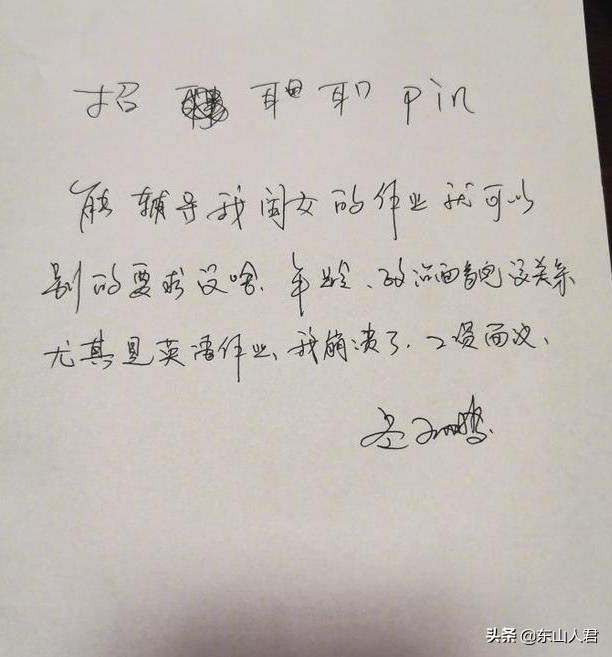 招 Pin
能辅导我闺女的作业就可以
别的要求没啥、年龄、政治面貌没关系
尤其是英语作业、我崩溃了、工资面议、
岳云鹏
头条 @东山人君